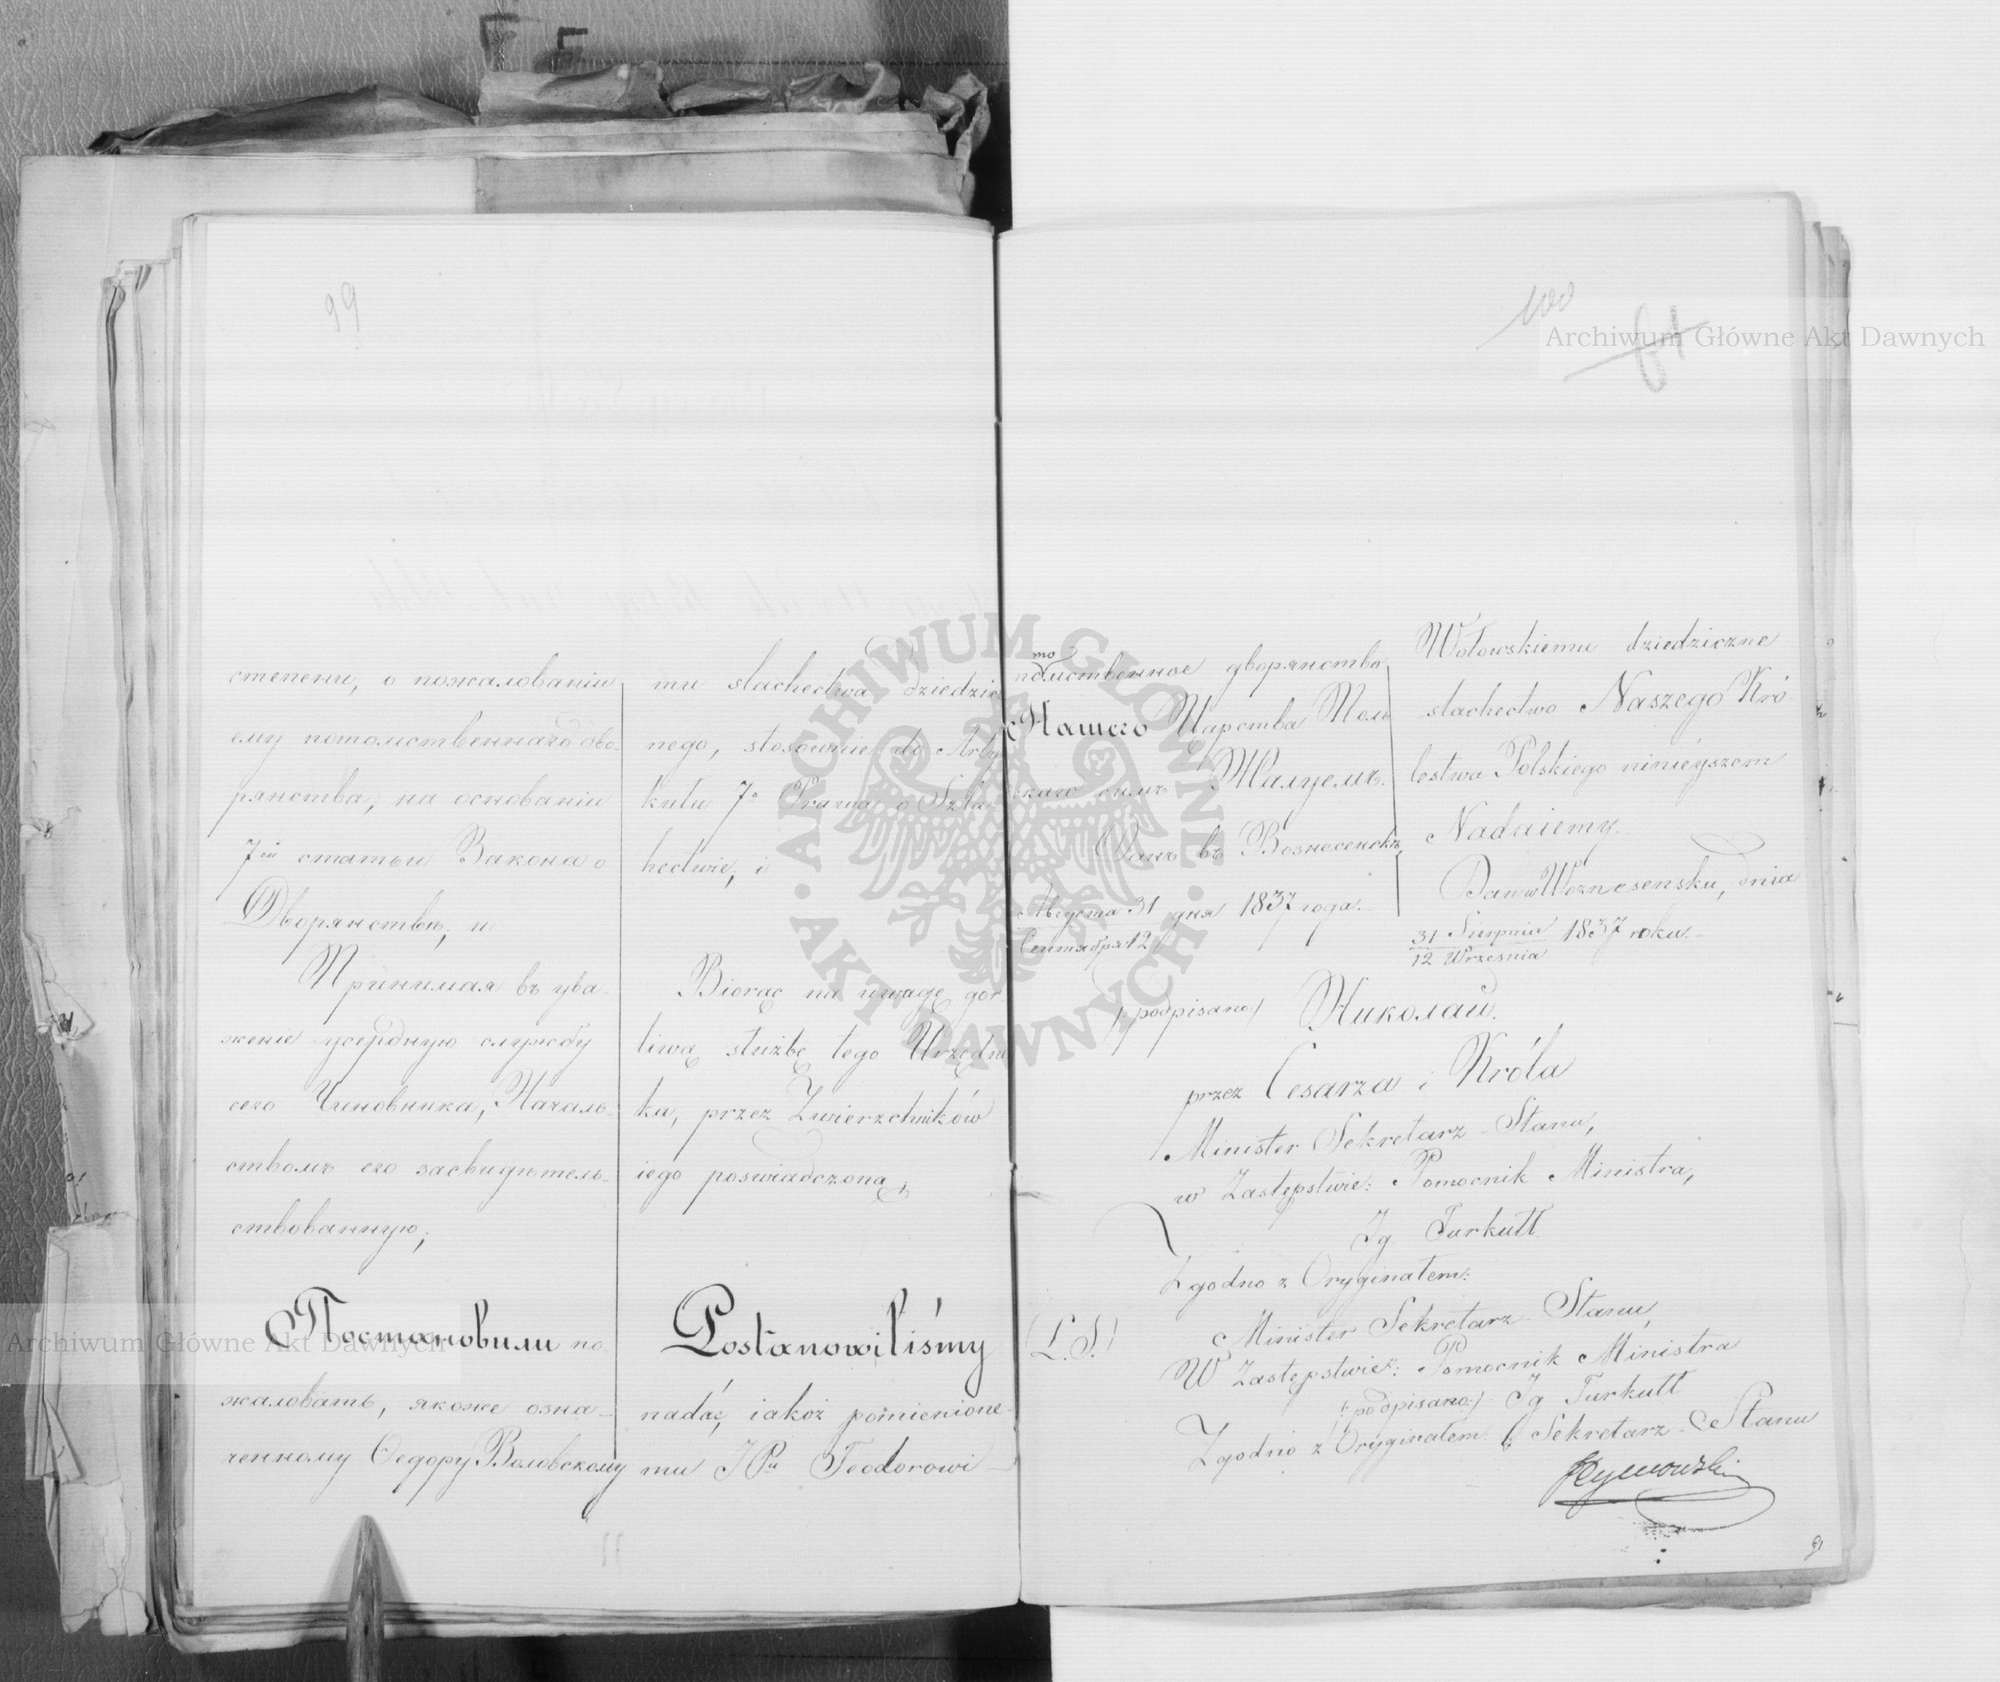 99
степени, о пожалованіи
ему потомственнаго дво-
рянства, на основаніи
7ой статьи Закона о
Дворянствѣ, и
Принимая въ ува-
женіе усердную службу
сего Чиновника, Началь-
ствомъ его засвидѣтель-
ствованную;
Постановили по-
жаловать, якоже озна-
ченному Ѳедору Воловскому
mu slachectwa dziedzicz
nego, stosownie do Arty
kułu 7o Prawa o Szla
hectwie, i
Biorąc na uwagę gor
liwą służbę tego Urzędni
ka, przez Zwierzchników
iego poswiadczoną,
Postanowiliśmy
nadać, iakoż pomienione-
mu JPu Teodorowi
100
61
потомственное дворянство
Нашего Царства Поль
скаго симъ Жалуемъ.
Данъ въ Вознесенскѣ,
Августа 31 дня 1837 года.
Сентября 12
Wołowskiemu dziedziczne
slachectwo Naszego Kró-
lestwa Polskiego ninieyszem
Nadaiemy.
Dan w Woznesensku, dnia
31 Sierpnia 1837 roku.
12 Września
/:podpisano:/ Николай.
przez Cesarza i Króla
Minister Sekretarz Stanu,
w Zastępstwie: Pomocnik Ministra,
Ig Turkułł
Zgodno z Oryginałem:
Minister Sekretarz Stanu,
(L.S.)
W Zastępstwie: Pomocnik Ministra
/:podpisano:/ Ig Turkułł
Zgodno z Oryginałem: Sekretarz Stanu
Archiwum Główne Akt Dawnych
Archiwum Główne Akt Dawnych
ARCHIWUM GŁÓWNE AKT DAWNYCH